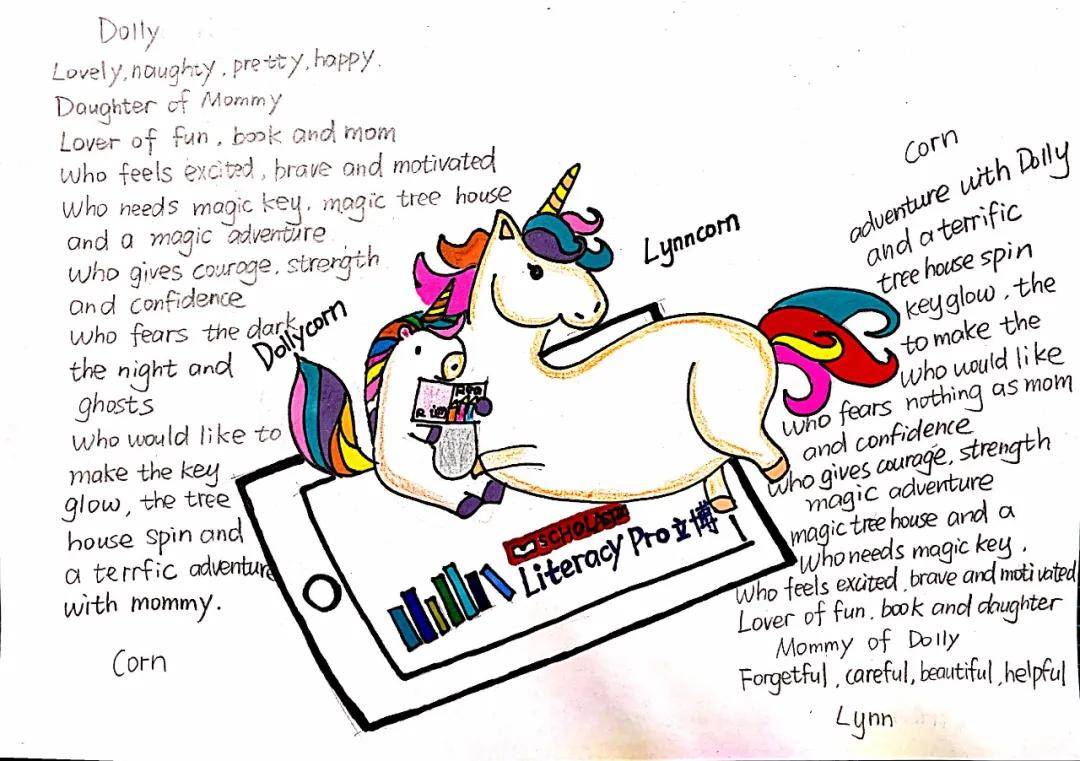 Dolly
Lovely, naughty, pretty, happy.
Daughter of Mommy
Lover of fun, book and mom
Who feels excited, brave and motivated
Who needs magic key, magic tree house
and a magic adventure
who gives courage, strength
and confidence
who fears the dark
the night and
ghosts
who would like to
make the key
glow, the tree
house spin and
a terrfic adventure
with mommy.
Corn
Dollycorn
Lynncorn
SCHOLASTIC
Literacy Pro立博
Lynn
Forgetful, careful, beautiful, helpful
Mommy of Dolly
Lover of fun, book and daughter
Who feels excited, brave and motivated
Who needs magic key,
magic tree house and a
magic adventure
who gives courage, strength
and confidence
who fears nothing as mom
who would like
to make the
key glow, the
tree house spin
and a terrific
adventure with Dolly
Corn